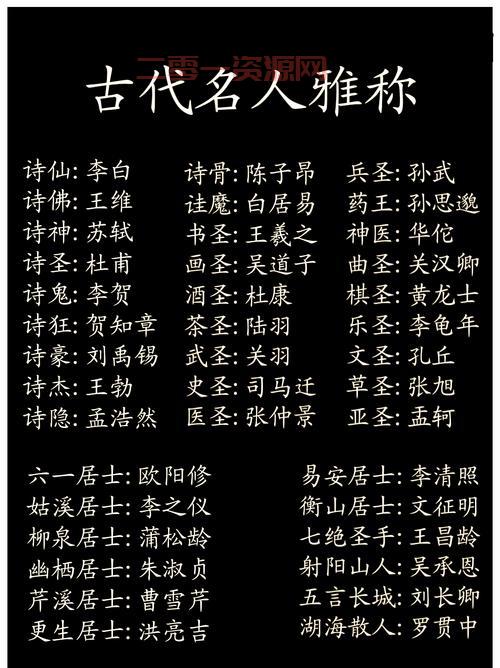 二零一资源网
古代名人雅称
诗仙: 李白 诗骨: 陈子昂 兵圣: 孙武
诗佛: 王维 诖魔: 白居易 药王: 孙思邈
诗神: 苏轼 书圣: 王羲之 神医: 华佗
诗圣: 杜甫 画圣: 吴道子 曲圣: 关汉卿
诗鬼: 李贺 酒圣: 杜康 棋圣: 黄龙士
诗狂: 贺知章 茶圣: 陆羽 乐圣: 李龟年
诗豪: 刘禹锡 武圣: 关羽 文圣: 孔丘
诗杰: 王勃 史圣: 司马迁 草圣: 张旭
诗隐: 孟浩然 医圣: 张仲景 亚圣: 孟轲
六一居士: 欧阳修 易安居士: 李清照
姑溪居士: 李之仪 衡山居士: 文征明
柳泉居士: 蒲松龄 七绝圣手: 王昌龄
幽栖居士: 朱淑贞 射阳山人: 吴承恩
芹溪居士: 曹雪芹 五言长城: 刘长卿
更生居士: 洪亮吉 湖海散人: 罗贯中